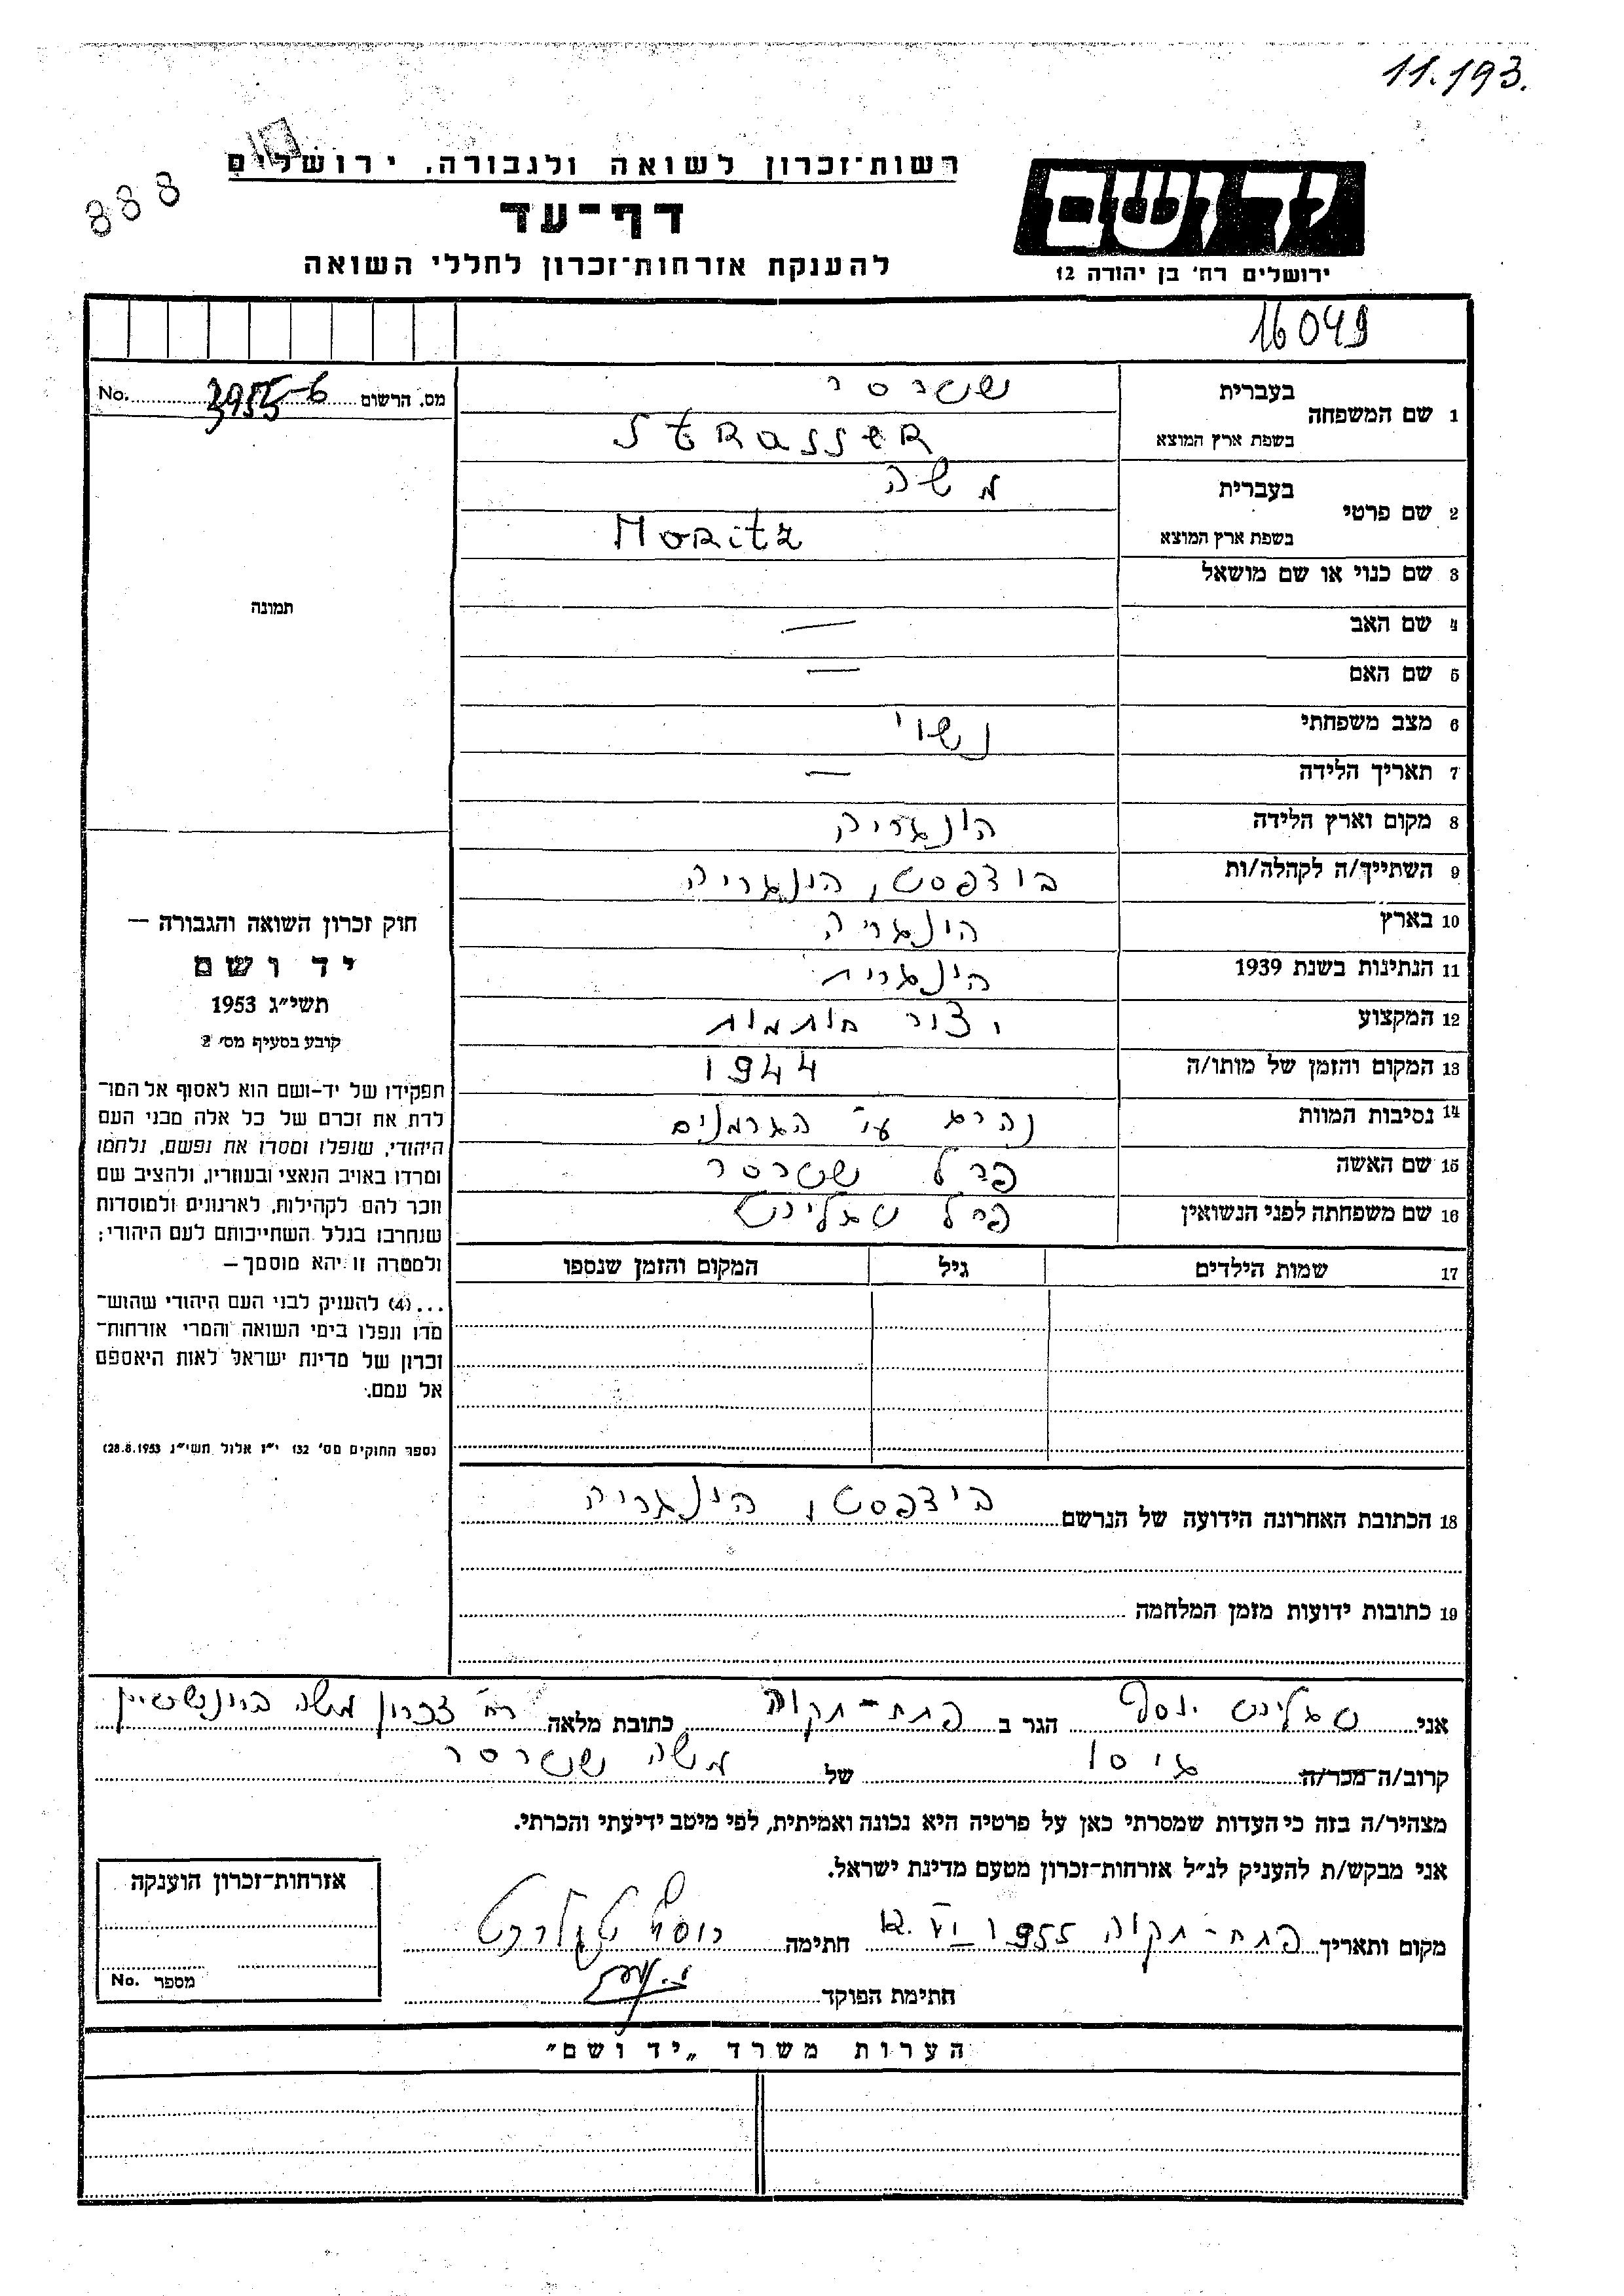 11.193.
888
רשות־זכרון לשואה ולגבורה, ירושלים
דף־עד
להענקת אזרחות־זכרון לחללי השואה
יד ושם
ירושלים רח' בן יהודה 12
16049
מס. הרשום No. 3955-6
1 שם המשפחה
בעברית שטרסר
בשפת ארץ המוצא Strasser
2 שם פרטי
בעברית משה
בשפת ארץ המוצא Moritz
3 שם כנוי או שם מושאל
4 שם האב —
5 שם האם —
6 מצב משפחתי נשוי
7 תאריך הלידה —
8 מקום וארץ הלידה הונגריה
9 השתייך/ה לקהלה/ות בודפסט, הונגריה
10 בארץ הונגריה
11 הנתינות בשנת 1939 הונגרית
12 המקצוע יצור חותמות
13 המקום והזמן של מותו/ה 1944
14 נסיבות המוות נהרג ע״י הגרמנים
15 שם האשה פרל שטרסר
16 שם משפחתה לפני הנשואין פרל טגלינט
17 שמות הילדים גיל המקום והזמן שנספו
תמונה
חוק זכרון השואה והגבורה —
יד ושם
תשי״ג 1953
קובע בסעיף מס׳ 2
תפקידו של יד-ושם הוא לאסוף אל המו־
לדת את זכרם של כל אלה מבני העם
היהודי, שנפלו ומסרו את נפשם, נלחמו
ומרדו באויב הנאצי ובעוזריו, ולהציב שם
וזכר להם לקהילות, לארגונים ולמוסדות
שנחרבו בגלל השתייכותם לעם היהודי;
ולמטרה זו יהא מוסמך —
...(4) להעניק לבני העם היהודי שהוש־
מדו ונפלו בימי השואה והמרי אזרחות־
זכרון של מדינת ישראל לאות היאספם
אל עמם.
(ספר החוקים מס׳ 132 י״ז אלול תשי״ג 28.8.1953)
18 הכתובת האחרונה הידועה של הנרשם בודפסט, הונגריה
19 כתובות ידועות מזמן המלחמה
אני טגלינט יוסף הגר ב פתח-תקוה כתובת מלאה רח׳ זכרון משה
קרוב/ה מכר/ה גיסו של משה שטרסר
מצהיר/ה בזה כי העדות שמסרתי כאן על פרטיה היא נכונה ואמיתית, לפי מיטב ידיעתי והכרתי.
אני מבקש/ת להעניק לנ״ל אזרחות־זכרון מטעם מדינת ישראל.
מקום ותאריך פתח-תקוה 12.VI 1955 חתימה יוסף טגלינט
חתימת הפוקד
אזרחות־זכרון הוענקה
מספר No.
הערות משרד „יד ושם״